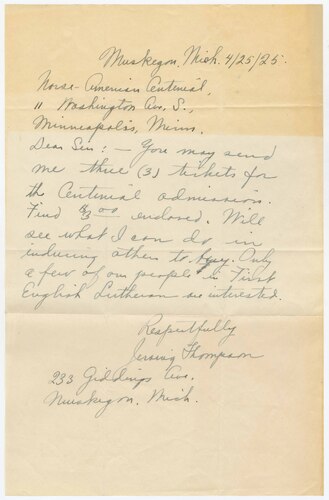 Muskegon, Mich. 4/25/25.
Norse-American Centenial,
11 Washington Ave. S.,
Minneapolis, Minn.
Dear Sir: - You may send
me three (3) tickets for
the Centenial admission.
Find $3.00 enclosed. Will
see what I can do in
inducing others to buy. Only
a few of our people in First
English Lutheran are interested.
Respectfully
Thompson
233 Giddings Ave.
Muskegon, Mich.